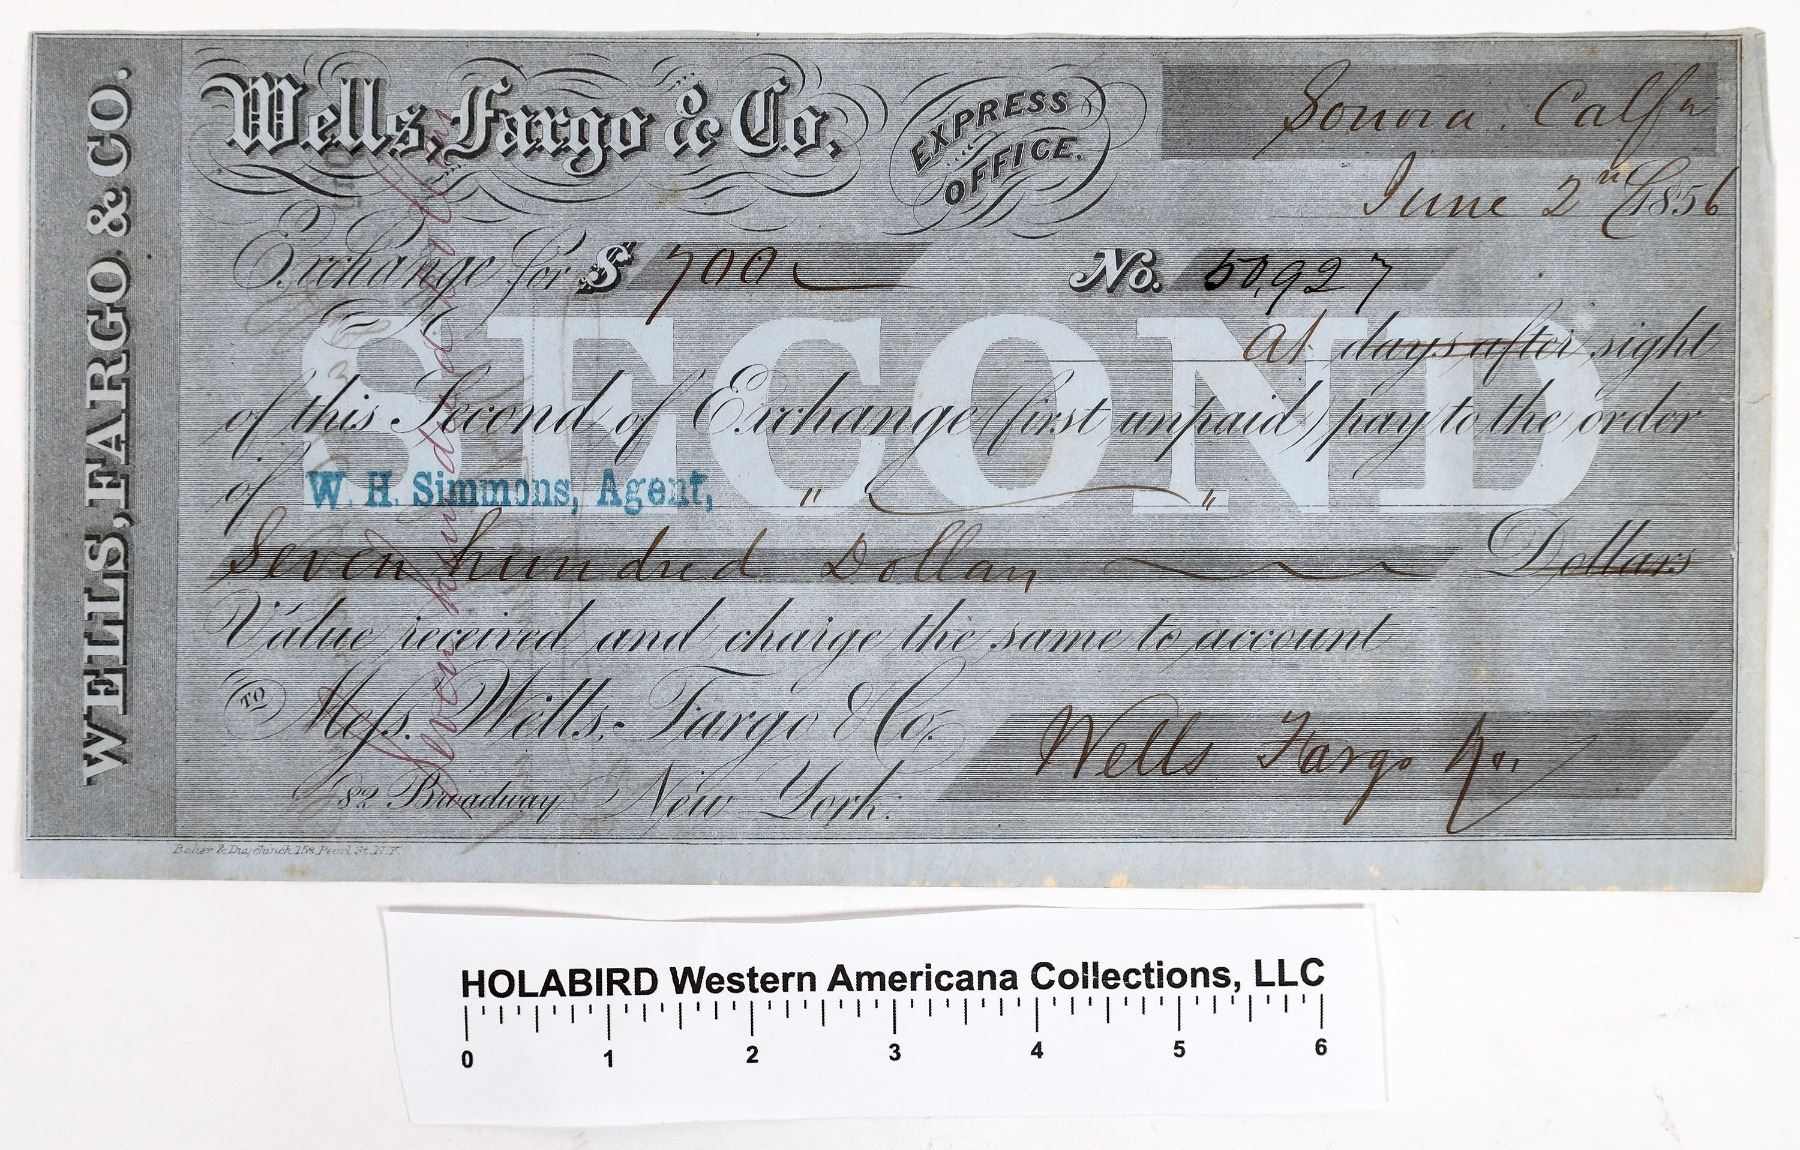 WELLS, FARGO & CO.
Wells, Fargo & Co.
EXPRESS OFFICE.
Sonora. Calfa
June 2nd 1856
Exchange for $ 700
No. 50,927
At days after sight
of this Second of Exchange (first unpaid) pay to the order
of W. H. Simmons, Agent, " "
SECOND
Seven hundred Dollars Dollars
Value received and charge the same to account
TO Mess. Wells, Fargo & Co.
82 Broadway New York.
Wells Fargo & Co.
Seven hundred Dollars
Baker & Duyckinck 158 Pearl St. N.Y.
HOLABIRD Western Americana Collections, LLC
0 1 2 3 4 5 6